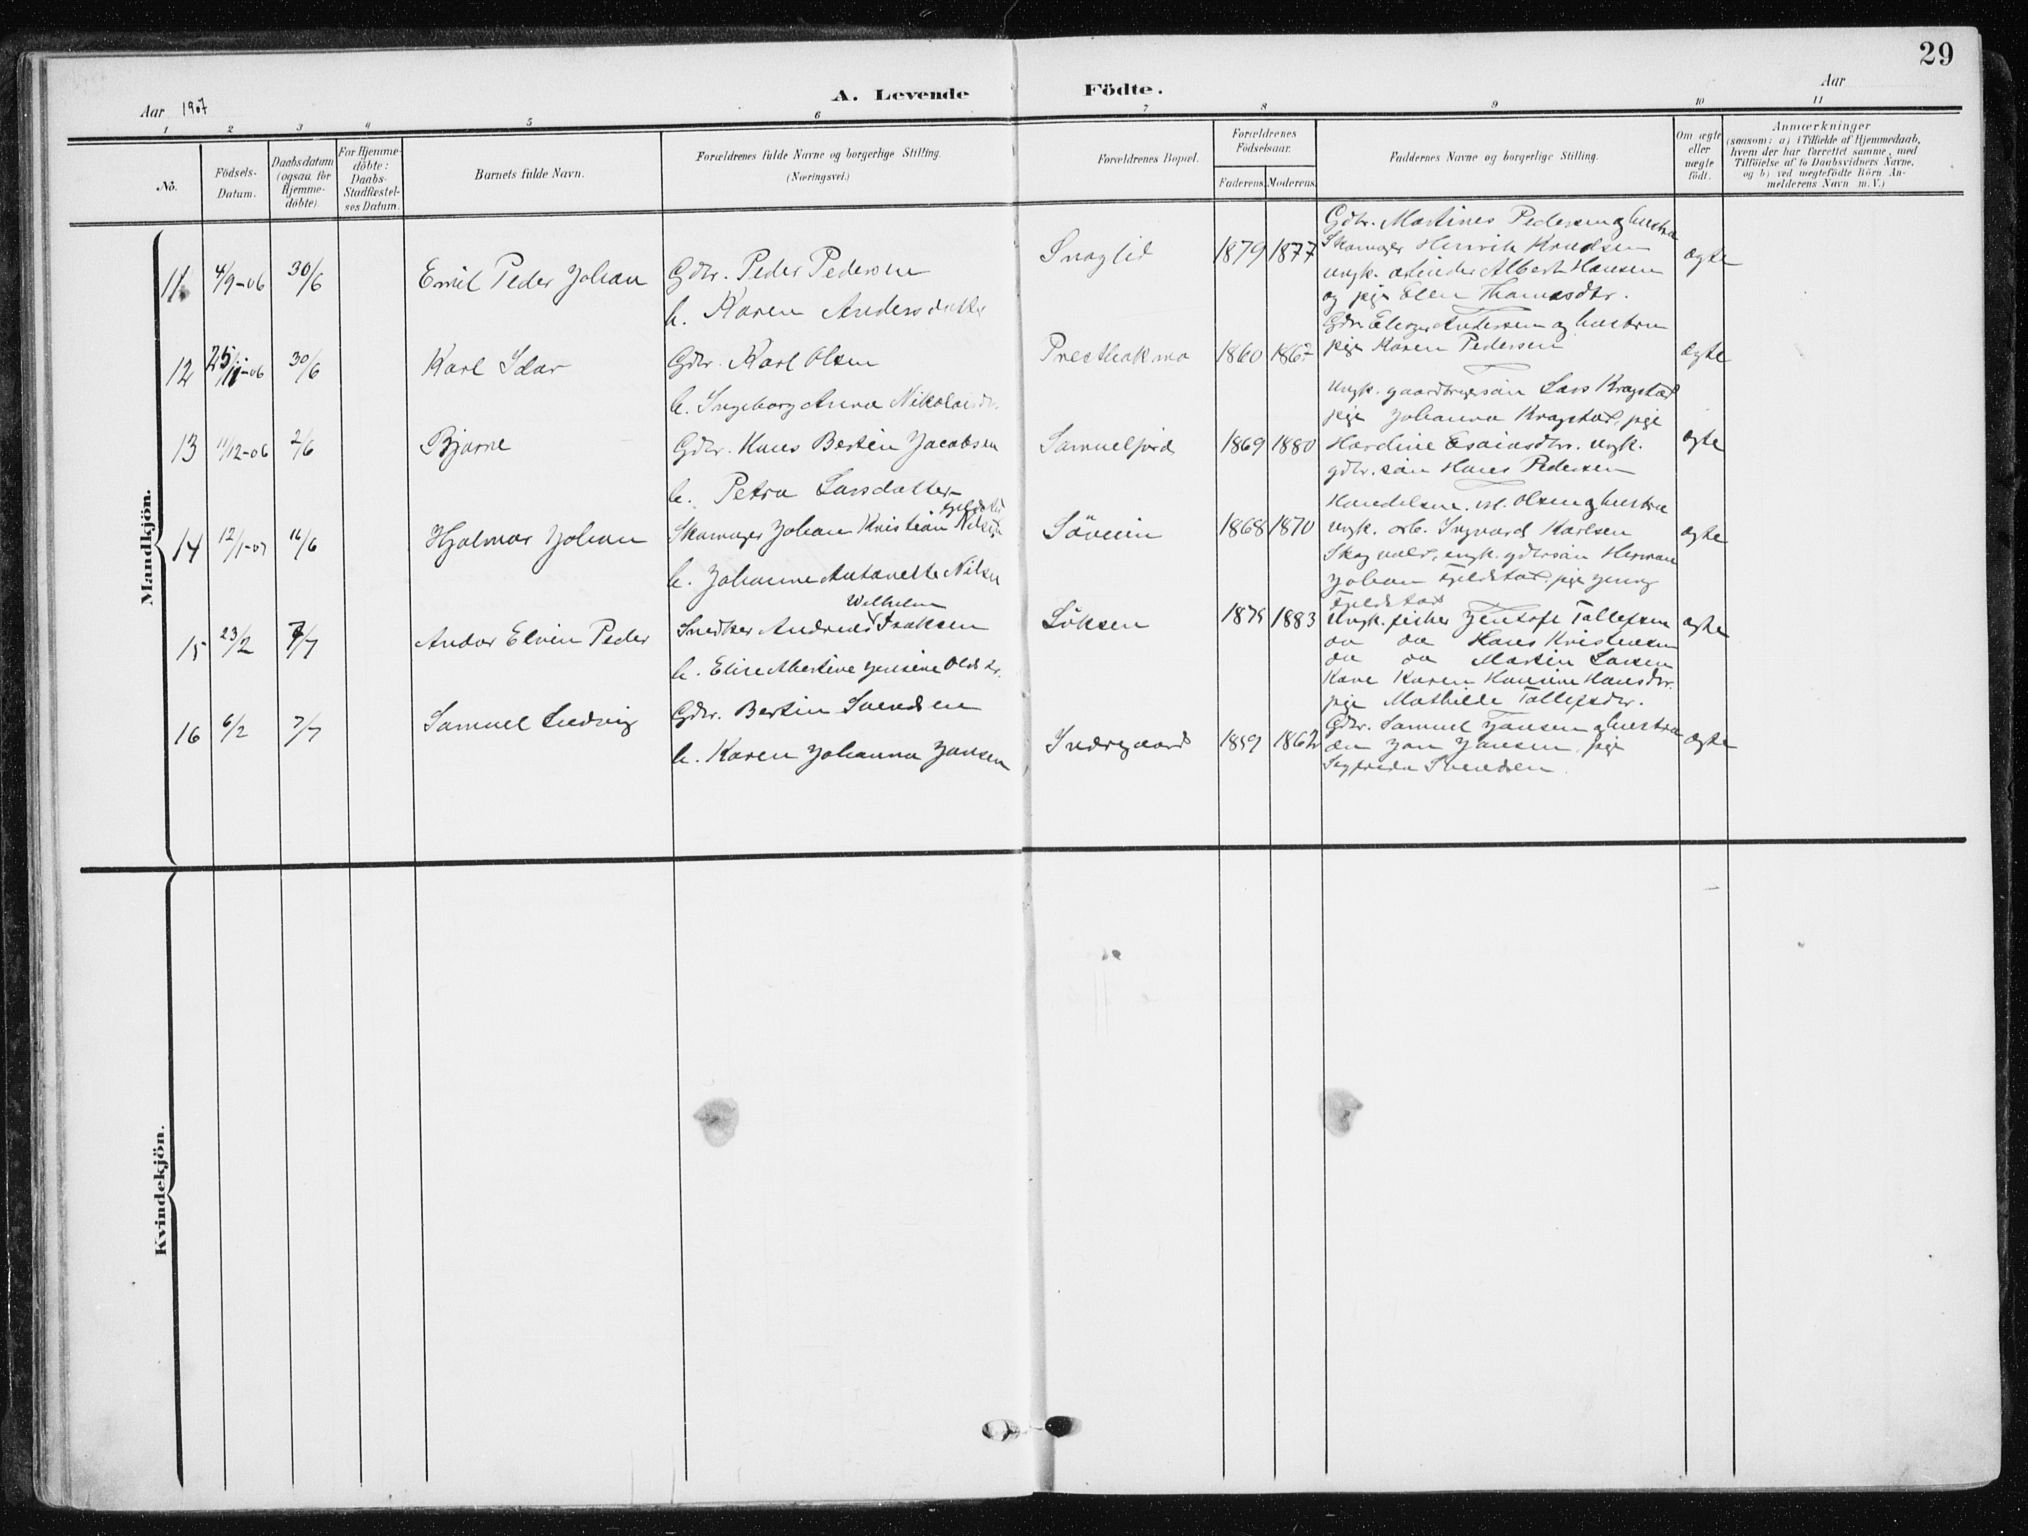 29
A. Levende Födte.
Aar 1907
Aar
1 2 3 4 5 6 7 8 9 10 11
No.
Födsels-
Datum.
Daabsdatum
(ogsaa for
Hjemme-
döbte).
For Hjemme-
döbte:
Daabs-
Stadfæstel-
ses Datum.
Barnets fulde Navn.
Forældrenes fulde Navne og borgerlige Stilling.
(Næringsvei.)
Forældrenes Bopæl.
Forældrenes
Födselsaar.
Faderens. Moderens.
Faddernes Navne og borgerlige Stilling.
Om ægte
eller
uægte
födt.
Anmærkninger
(saasom: a) i Tilfælde af Hjemmedaab,
hvem der har forrettet samme, med
Tilföielse af to Daabsvidners Navne,
og b) ved uægtefödte Börn An-
melderens Navn m. V.)
Mandkjön.
11 4/9-06 30/6 Emil Peder Johan
Gdbr. Peder Pedersen
h. Karen Andersdatter
Snoglid 1879 1877
Gdbr. Martines Pedersen og hustru
Skomager Henrik Knudsen
ungk. arbeider Albert Hansen
og pige Elen Thomasdtr.
ægte
12 25/11-06 30/6 Karl Idar
Gdbr. Karl Olsen
h. Ingeborg Anna Nikolaisdtr.
Presthakmo 1860 1867
Andersen og hustru
pige Karen Pedersen
ægte
13 11/12-06 2/6 Bjarne
Gdbr. Hans Bertin Jacobsen
h. Petra Larsdatter
Samuelfjord 1869 1880
ungk. gaardbrugersön Lars Kragstad
pige Johanna Kragstad, pige
Hardine Esaiasdtr. ungk.
gdbr. sön Hans Pedersen
ægte
14 12/1-07 16/6 Hjalmar Johan
Skomager Johan Kristian
h. Johanne Antonette Nilsen
Söveien 1868 1870
Olsen og hustru
ungk. arb. Ingvard Karlsen
Skogvold, ungk. gdbrsön Herman
Johan Fjeldstad, pige Jenny
Fjeldstad
ægte
15 23/2 7/7 Andor Elvin Peder
Wilhelm
Snedker Andreas Isaksen
h. Elise Albertine Jensine Olsdtr.
Söksen 1875 1883
Ungk. fisker Jentoft Tollefsen
do do Hans Kristensen
do do Martin Larsen
Kone Karen Hansine Hansdtr.
pige Mathilde Tollefsdtr.
ægte
16 6/2 7/7 Samuel Ludvig
Gdbr. Bertin Svendsen
h. Karen Johanna Jansen
Indregaard 1859 1862
Gdbr. Samuel Jansen og hustru
Jan Jansen, pige
Svendsen
ægte
Kvindekjön.